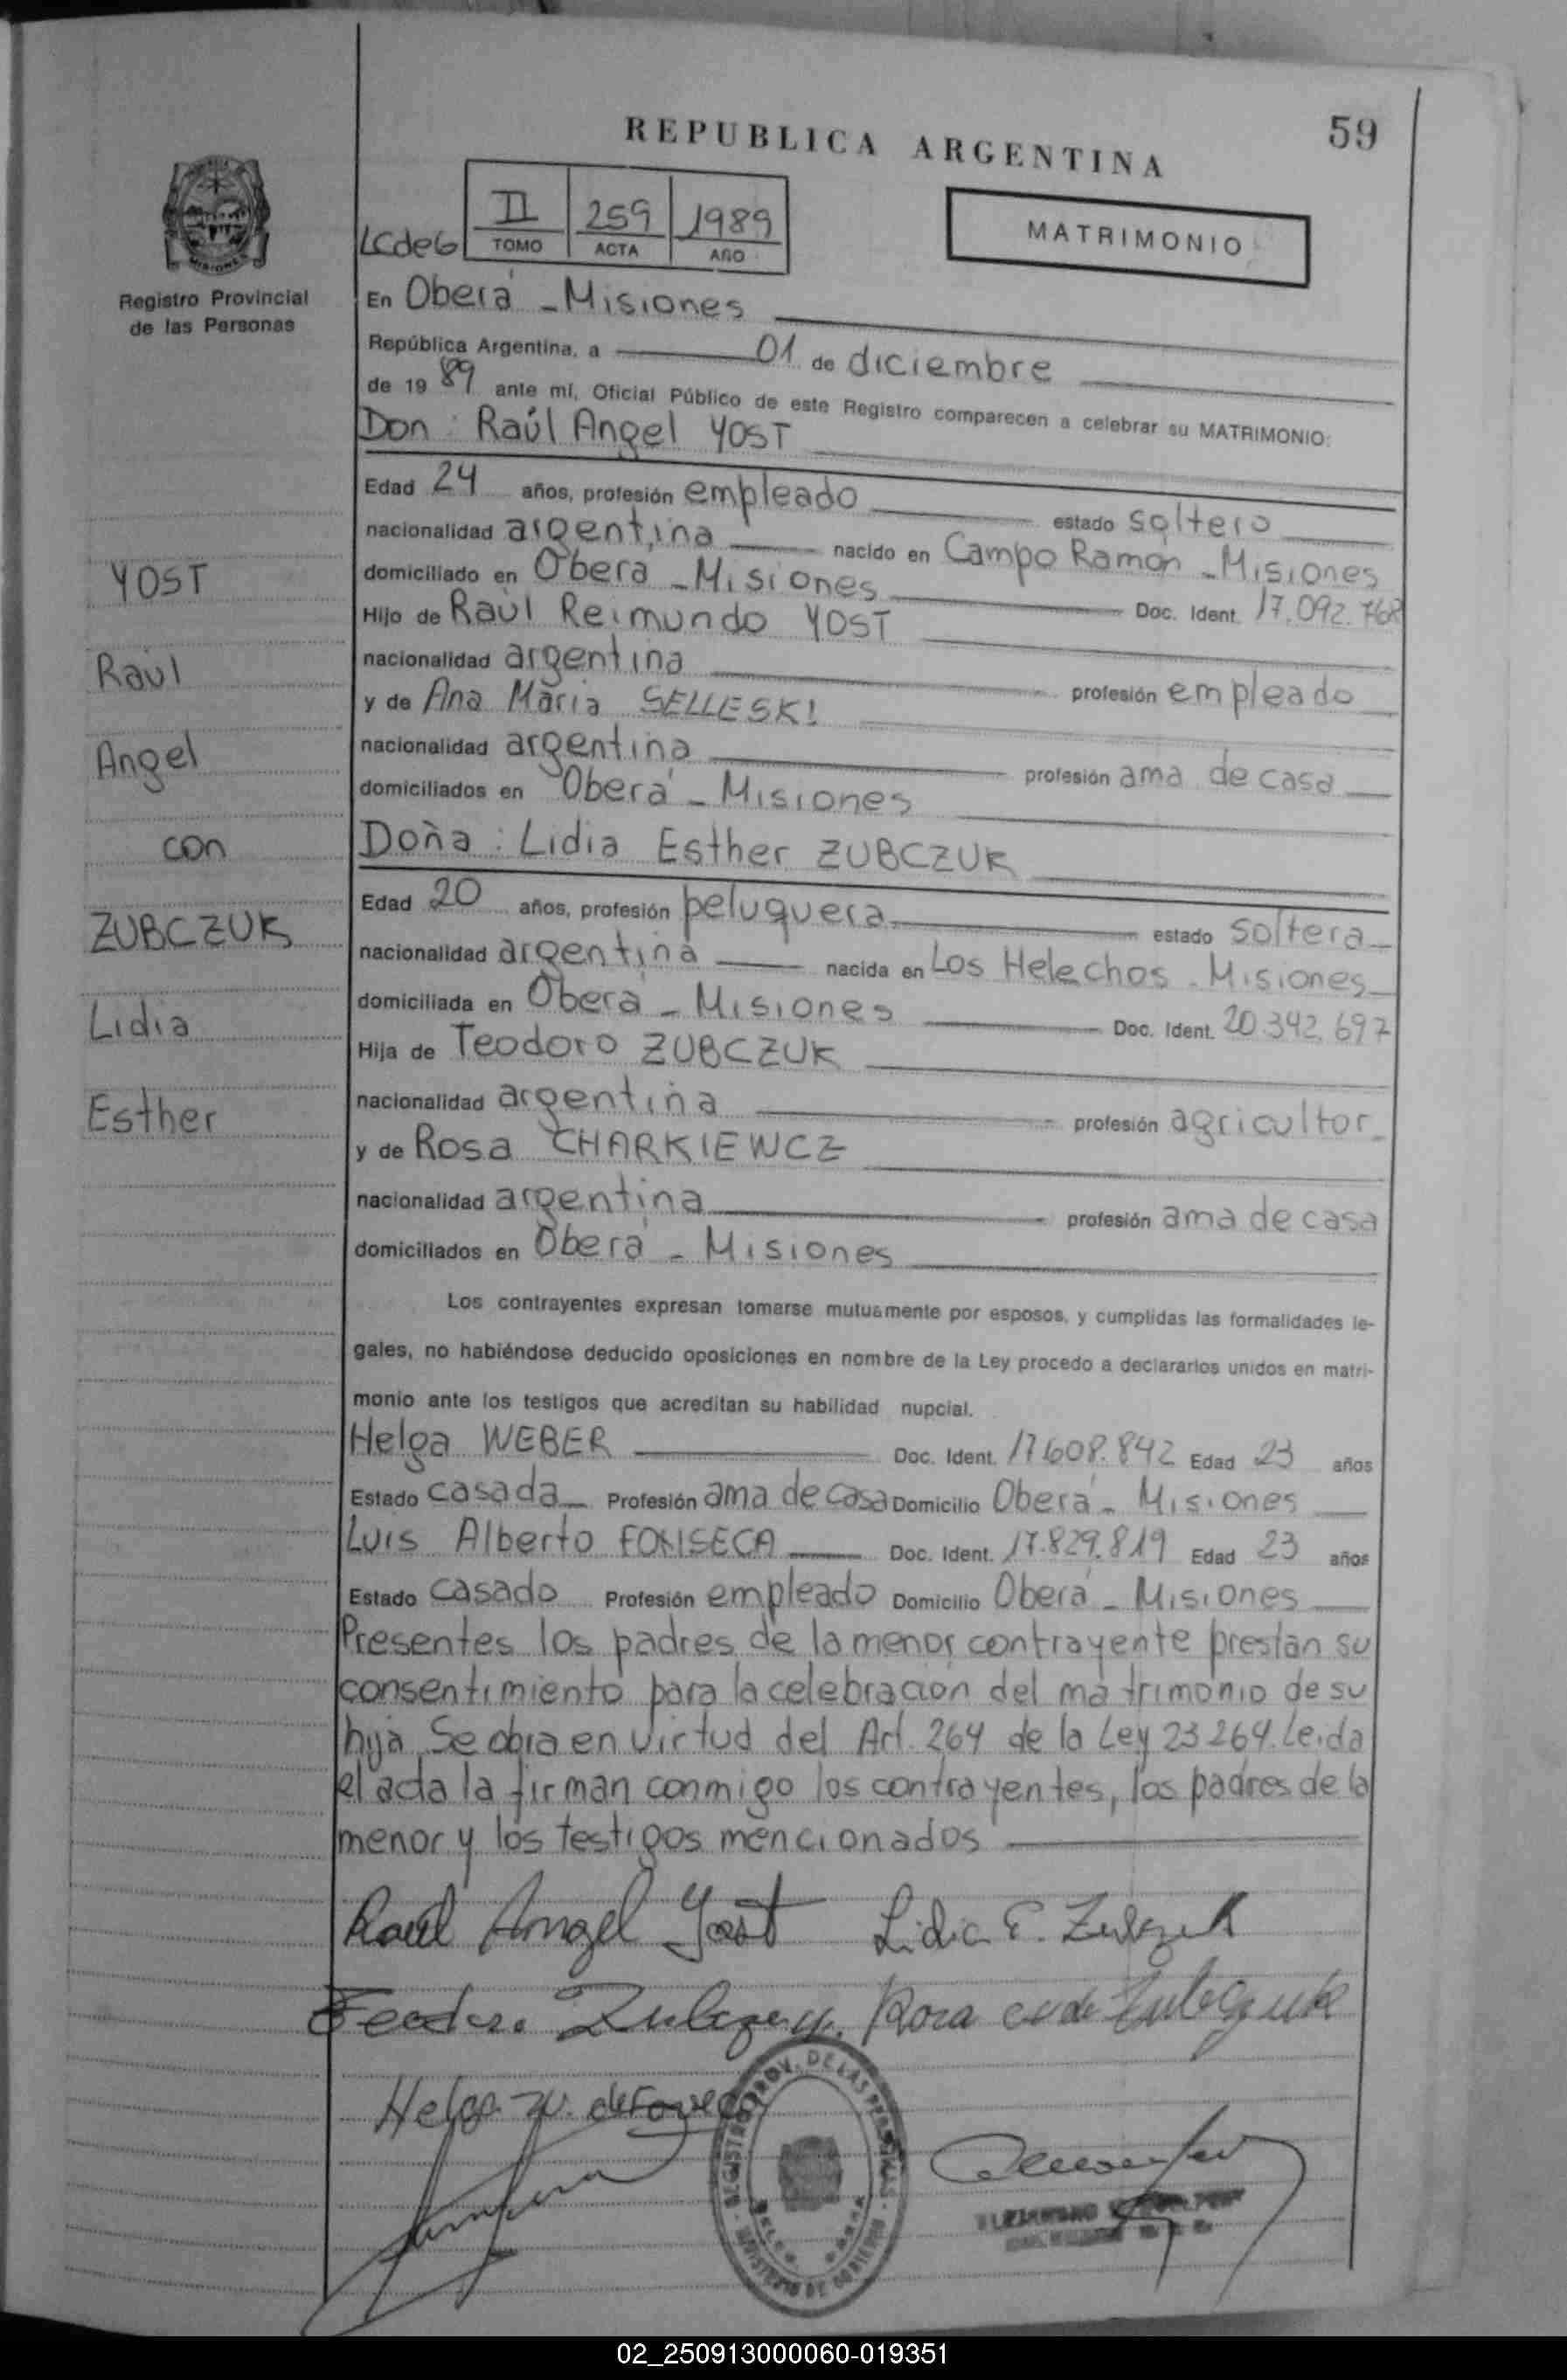 REPUBLICA ARGENTINA
59
LCdeG
II
259
1989
TOMO
ACTA
AÑO
MATRIMONIO
Registro Provincial
de las Personas
En Oberá - Misiones
República Argentina, a 01 de diciembre
de 19 89 ante mí, Oficial Público de este Registro comparecen a celebrar su MATRIMONIO:
Don: Raúl Angel YOST
Edad 24 años, profesión empleado estado soltero
nacionalidad argentina nacido en Campo Ramón - Misiones
domiciliado en Oberá - Misiones Doc. Ident. 17.092.768
Hijo de Raúl Reimundo YOST
nacionalidad argentina profesión empleado
y de Ana María SELLESKI
nacionalidad argentina profesión ama de casa
domiciliados en Oberá - Misiones
Doña: Lidia Esther ZUBCZUK
Edad 20 años, profesión peluquera estado soltera
nacionalidad argentina nacida en Los Helechos - Misiones
domiciliada en Oberá - Misiones Doc. Ident. 20.342.697
Hija de Teodoro ZUBCZUK
nacionalidad argentina profesión agricultor
y de Rosa CHARKIEWCZ
nacionalidad argentina profesión ama de casa
domiciliados en Oberá - Misiones
YOST
Raúl
Angel
con
ZUBCZUK
Lidia
Esther
Los contrayentes expresan tomarse mutuamente por esposos, y cumplidas las formalidades le-
gales, no habiéndose deducido oposiciones en nombre de la Ley procedo a declararlos unidos en matri-
monio ante los testigos que acreditan su habilidad nupcial.
Helga WEBER Doc. Ident. 17.608.842 Edad 23 años
Estado casada Profesión ama de casa Domicilio Oberá - Misiones
Luis Alberto FONSECA Doc. Ident. 17.829.819 Edad 23 años
Estado casado Profesión empleado Domicilio Oberá - Misiones
Presentes los padres de la menor contrayente prestan su
consentimiento para la celebración del matrimonio de su
hija. Se obra en virtud del Art. 264 de la Ley 23264. Leída
el acta la firman conmigo los contrayentes, los padres de la
menor y los testigos mencionados
Raúl Angel Yost
Lidia E. Zubczuk
Rosa
Helga W. de
REGISTRO PROV. DE LAS PERSONAS
MINISTERIO DE GOBIERNO
02_250913000060-019351